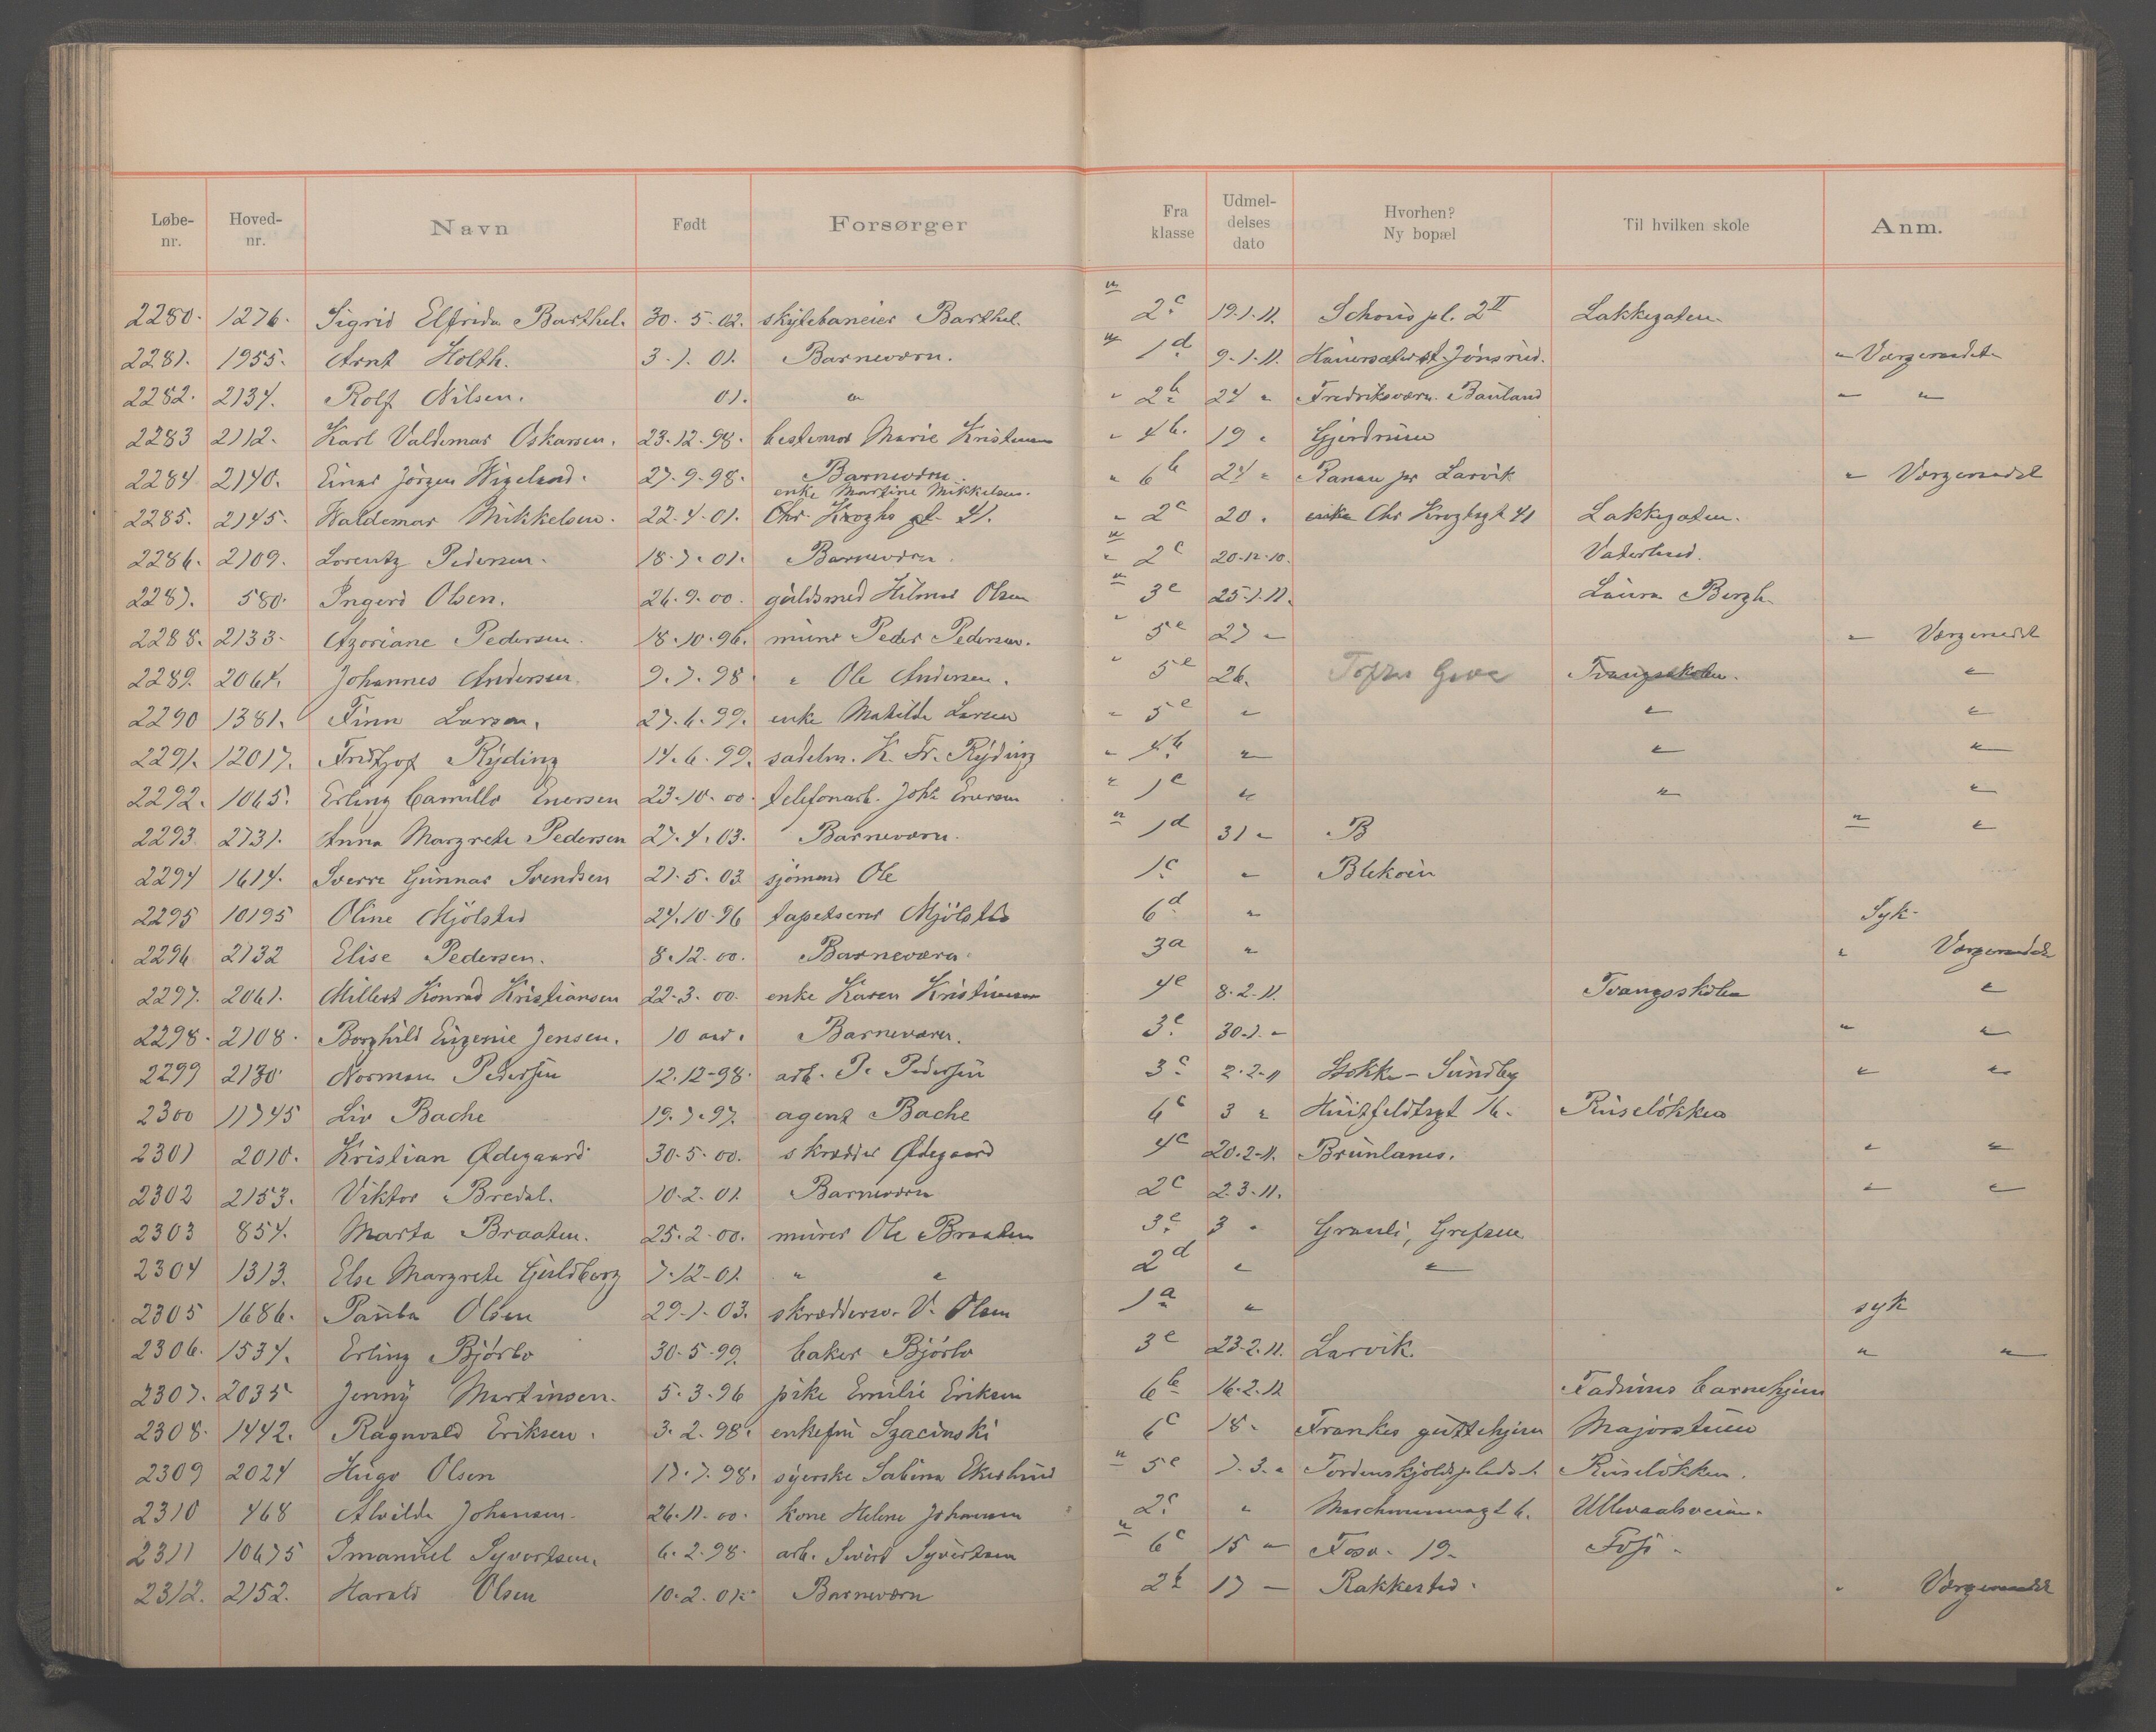 Løbe-nr. Hoved-nr. Navn Født Forsørger Fra klasse Udmel-delses dato Hvorhen? Ny bopæl Til hvilken skole Anm.
2280. 1276. Sigrid Elfrida Barthel. 30.5.02. skytebaneier Barthel. 2c 19.1.11. Schous pl. 2 II Lakkegaten
2281. 1955. Arnt Holth. 3.1.01. Barneværn. 1d 9.1.11. Jønsrud. " Værgeraadet
2282. 2134. Rolf Nilsen. 01. " " 2b 24 " Fredriksværn. " "
2283 2112. Karl Valdemar Oskarsen. 23.12.98. bestemor Marie Kristensen " 4b. 19 " Gjerdrum
2284 2140. Einar Jörgen Wigeland. 27.9.98. Barneværn. " 6b 24 " Ranau pr Larvik " Værgeraadet
2285. 2145. Waldemar Mikkelsen. 22.4.01. enke Martine Mikkelsen. Chr. Kroghs gt. 41. " 2c 20. Chr Kroghsgt 41 Lakkegaten.
2286. 2109. Lorentz Pedersen. 18.7.01. Barneværn. " 2c 20.12.10. Vaterland.
2287. 580. Ingerd Olsen. 26.9.00. guldsmed Hilmar Olsen " 3e 25.1.11. Laura Bergh.
2288. 2133. Azoriane Pedersen. 18.10.96. murer Peder Pedersen. " 5e 27 " " Værgeraadet
2289. 2064. Johannes Andersen. 9.7.98 " Ole Andersen. " 5e 26. Toftes Gave Tvangsskolen. "
2290 1381. Finn Larsen. 27.6.99. enke Matilde Larsen " 5e " " "
2291. 12017. Fridtjof Ryding 14.6.99. sadelm. K. Fr. Ryding " 4b " " "
2292. 1065. Erling Camillo Enersen 23.10.00. telefonarb. Johs Enersen " 1e " " "
2293 2731. Anna Margrete Pedersen 27.4.03. Barneværn. " 1d 31 " B " "
2294 1614. Sverre Gunnar Svendsen 21.5.03 sjømand Ole 1c " Blekøen
2295 10195 Oline Mjölsted 24.10.96 tapetserer Mjölsted 6d " Syk.
2296 2132 Elise Pedersen. 8.12.00. Barneværn. 3a " " Værgeraadet
2297. 2061. Millert Konrad Kristiansen 22.3.00. enke Karen Kristiansen 4e 8.2.11. Tvangsskolen "
2298. 2108. Borghild Eugenie Jensen. 10 aar. Barneværn. 3c 30.1. " " "
2299 2130 Norman Pedersen 12.12.98. arb. P. Pedersen 3c 2.2.11 Stokke - Sundby " "
2300 11745 Liv Bache 19.7.97. agent Bache 6c 3 " Huitfeldtsgt 16. Ruseløkken
2301 2010. Kristian Ødegaard 30.5.00. skrædder Ødegaard 4c 20.2.11. Brunlanes. " "
2302 2153. Viktor Bredal. 10.2.01. Barneværn 2c 2.3.11. " "
2303 854. Marta Braaten. 25.2.00. murer Ole Braaten 3e 3 " Granli, Grefsen
2304 1313. Else Margrete Guldberg 7.12.01. " " 2d " "
2305 1686. Paula Olsen 29.1.03. skræddersv. V. Olsen 1a " syk
2306. 1534. Erling Bjørbo 30.5.99. baker Bjørbo 3e 23.2.11. Larvik. " "
2307. 2035 Jenny Martinsen. 5.3.96 pike Emilie Eriksen 6b 16.2.11 Fadums barnehjem
2308. 1442. Ragnvald Eriksen. 3.2.98. enkefru Szacinski 6c 18. Frankes guttehjem Majorstuen
2309 2024 Hugo Olsen 17.7.98. syerske Sabina Ekerlund " 5e 7.3. " Tordenskjoldsplads 1. Ruseløkken.
2310 468 Alvilde Johansen. 26.11.00. kone Helene Johansen 2c " 6. Ullevaalsveien.
2311 10675 Imanuel Syvertsen. 6.2.98. arb. Sivert Syvertsen " 6c 15 " Fosv. 19.
2312. 2152. Harald Olsen 10.2.01. Barneværn 2b 17 " Rakkestad. " Værgeraadet